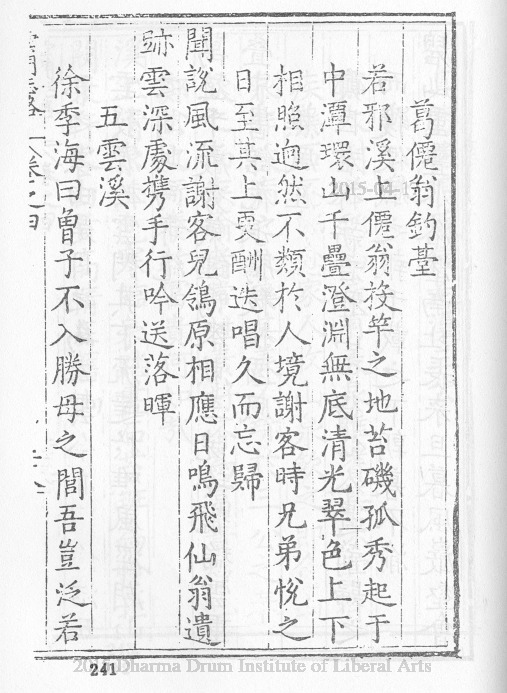 葛僊翁釣臺
若邪溪上僊翁投竿之地苔磯孤秀起于
中潭環山千疊澄淵無底清光翠色上下
相照逈然不類於人境謝客時兄弟悅之
日至其上更酬迭唱久而忘歸
聞說風流謝客兒鴒原相應日鳴飛仙翁遺
跡雲深處携手行吟送落暉
五雲溪
徐季海曰曾子不入勝母之閭吾豈泛若
卷之四
241
2015-04-1
Dharma Drum Institute of Liberal Arts